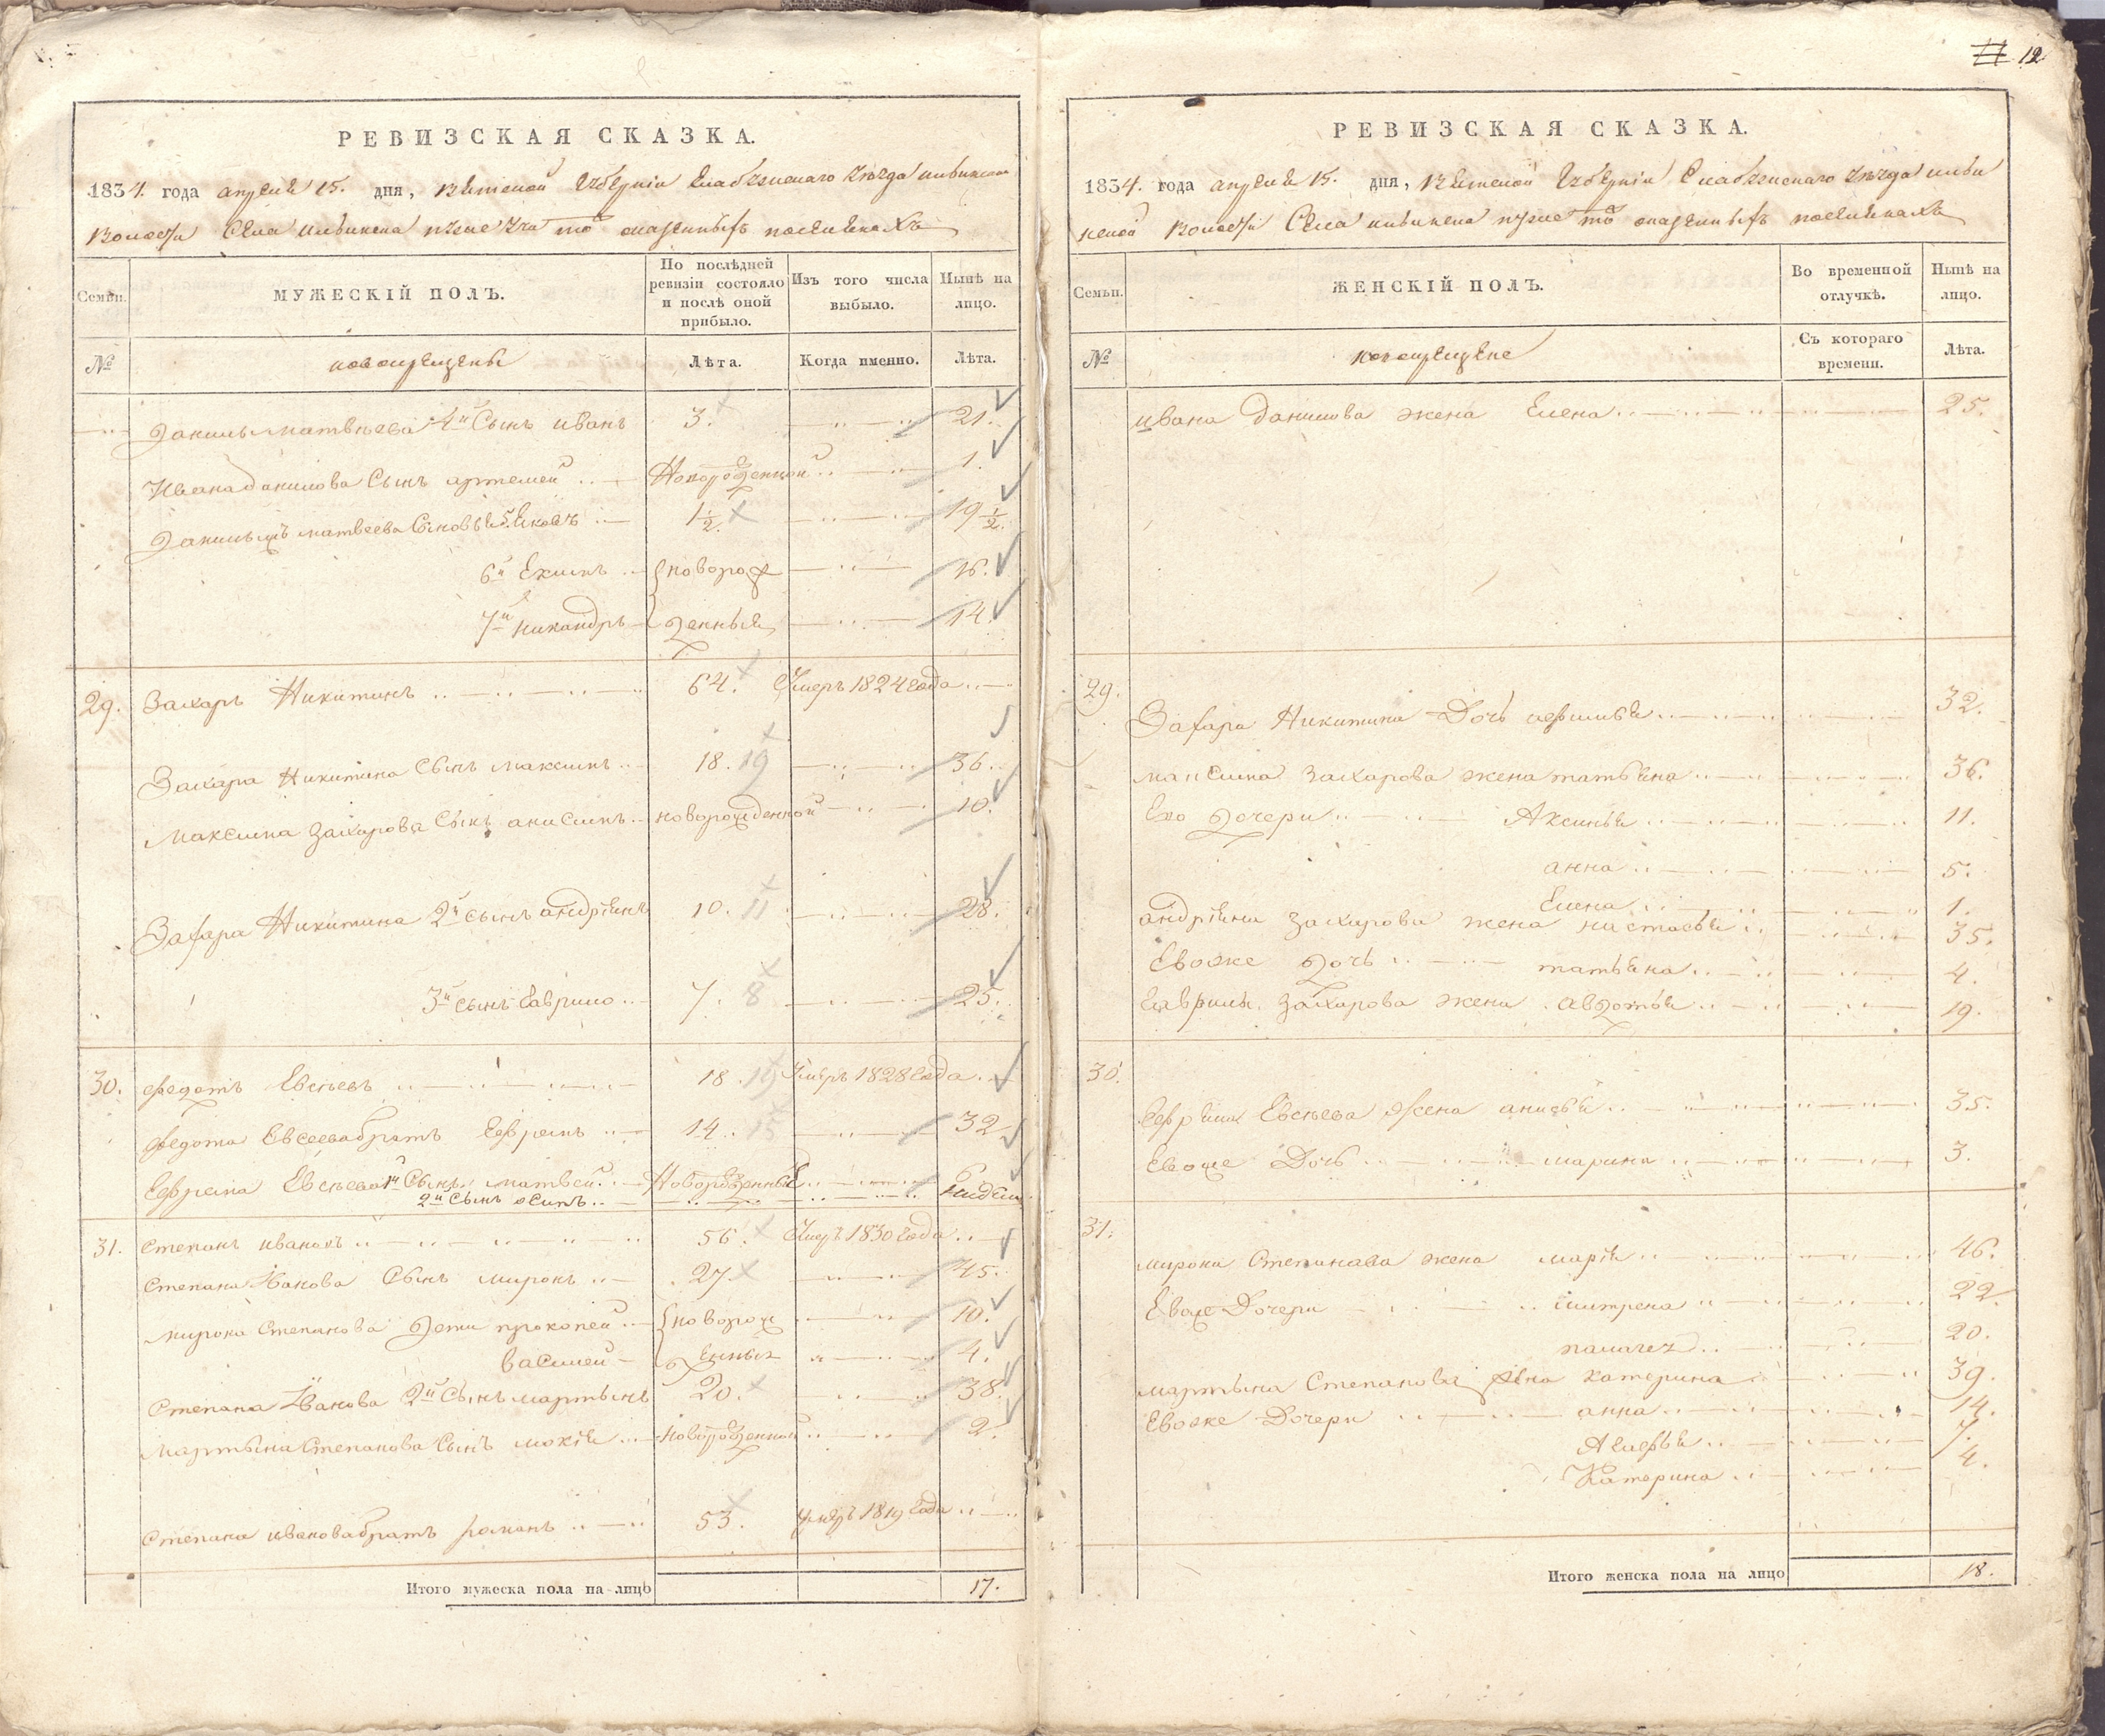 12
РЕВИЗСКАЯ СКАЗКА.
1834. года апреля 15. дня, Вятской Губернии Елабужскаго Уѣзда
Волости Села
Семьи.
МУЖЕСКІЙ ПОЛЪ.
По послѣдней ревизіи состояло и послѣ оной прибыло.
Изъ того числа выбыло.
Нынѣ на лицо.
№
новокрещены
Лѣта.
Когда именно.
Лѣта.
Данилы Матвѣева 4й Сынъ иванъ 3. 21.
Ивана данилова Сынъ артемей Новорожденной 1.
Матвеева Сыновья 5. Яковъ 1½ 19½
6й Екимъ новорож 16.
7й Никандръ денныя 14.
29. Захаръ Никитинъ 64. Умеръ 1824 года
Захара Никитина Сынъ максимъ 18. 19 36.
Максима Захарова Сынъ анисимъ новорожденной 10.
Захара Никитина 2й сынъ андріянъ 10. 11 28.
3й сынъ Гаврило 7. 8 25.
30. Федотъ Евсѣевъ 18. 19 Умеръ 1828 года
Федота Евсеева братъ Ефремъ 14. 15 32
Ефрема Евсѣева 1й Сынъ матвей Новорожденные 6
2й Сынъ осипъ недели
31. Степанъ ивановъ 56. Умеръ 1830 года
Степана Иванова Сынъ миронъ 27. 45.
Мирона Степанова Дети прокопей новорож 10.
василей денныя 4.
Степана Иванова 2й Сынъ мартынъ 20. 38.
Мартына Степанова Сынъ мокiй новорожденной 2.
Степана иванова братъ романъ 53. умеръ 1819 года
Итого мужеска пола на-лицо 17.
РЕВИЗСКАЯ СКАЗКА.
1834. года апреля 15. дня, Вятской Губерніи Елабужскаго Уѣзда
Волости Села
Семьи.
ЖЕНСКІЙ ПОЛЪ.
Во временной отлучкѣ.
Нынѣ на лицо.
№
новокрещене
Съ котораго времени.
Лѣта.
ивана данилова жена Елена 25.
29.
Захара Никитина Дочь 32.
максима захарова жена татьяна 36.
Его дочери Аксинья 11.
анна 5.
Елена 1.
андріяна захарова жена настасья 35.
Евоже дочь татьяна 4.
Гаврилы захарова жена авдотья 19.
30.
Ефрема Евсѣева жена анисья 35.
Евоже Дочь марина 3.
31.
мирона Степанова жена марія 46.
Евоже Дочери 22.
20.
мартына Степанова жена катерина 39.
Евоже Дочери анна 14.
7.
Катерина 4.
Итого женска пола на лицо 18.